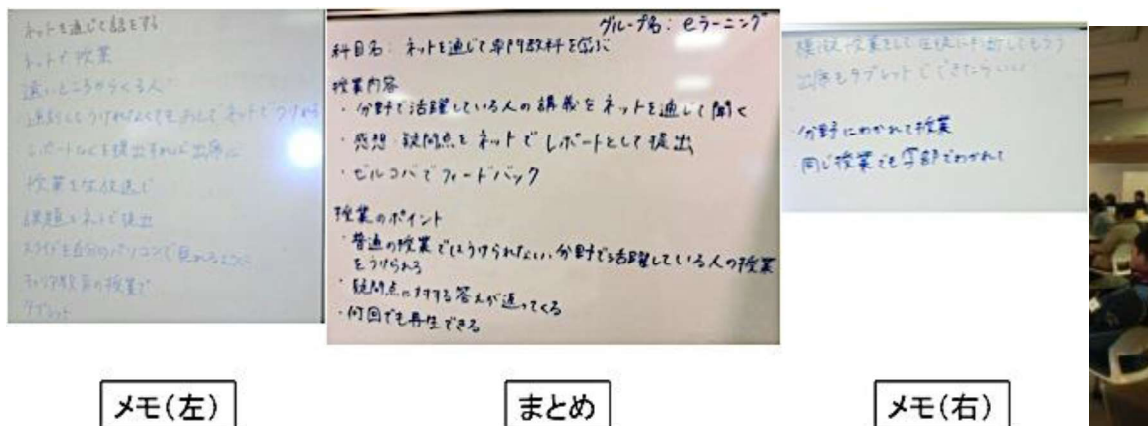 ネットを通じて話をする
ネットで授業
遠いところからくる人
レポートなどを提出すれば出席に
授業を生放送で
課題をネットで提出
スライドを自分のパソコンで見れるように
キャリア教育の授業で
タブレット
グループ名：eラーニング
科目名：ネットを通じて専門教科を学ぶ
授業内容
・分野で活躍している人の講義をネットを通して聞く
・感想・疑問点をネットでレポートとして提出
・ビルコバでフィードバック
授業のポイント
・普通の授業ではうけられない、分野で活躍している人の授業
をうけられる
・疑問点に対する答えが返ってくる
・何回でも再生できる
模擬授業をして生徒に判断してもらう
出席もタブレットでできたらいい
分野にわかれて授業
同じ授業でも学部でわかれて
メモ(左)
まとめ
メモ(右)